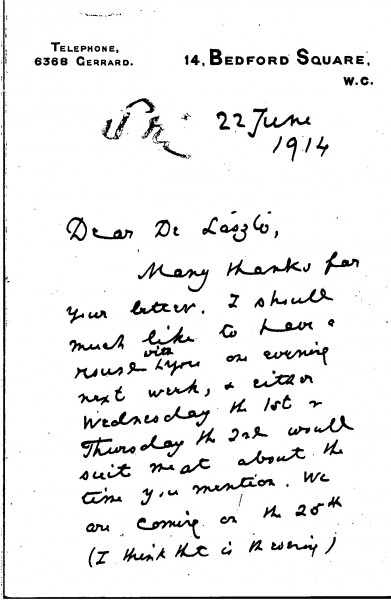 TELEPHONE,
6368 GERRARD.
14, BEDFORD SQUARE,
W.C.
22 June
1914
Dear De László,
Many thanks for
your letter. I should
much like to have a
with
you one evening
next week, & either
Wednesday the 1st or
Thursday the 2nd would
suit me at about the
time you mention. We
are coming on the 25th
(I think that is the evening)